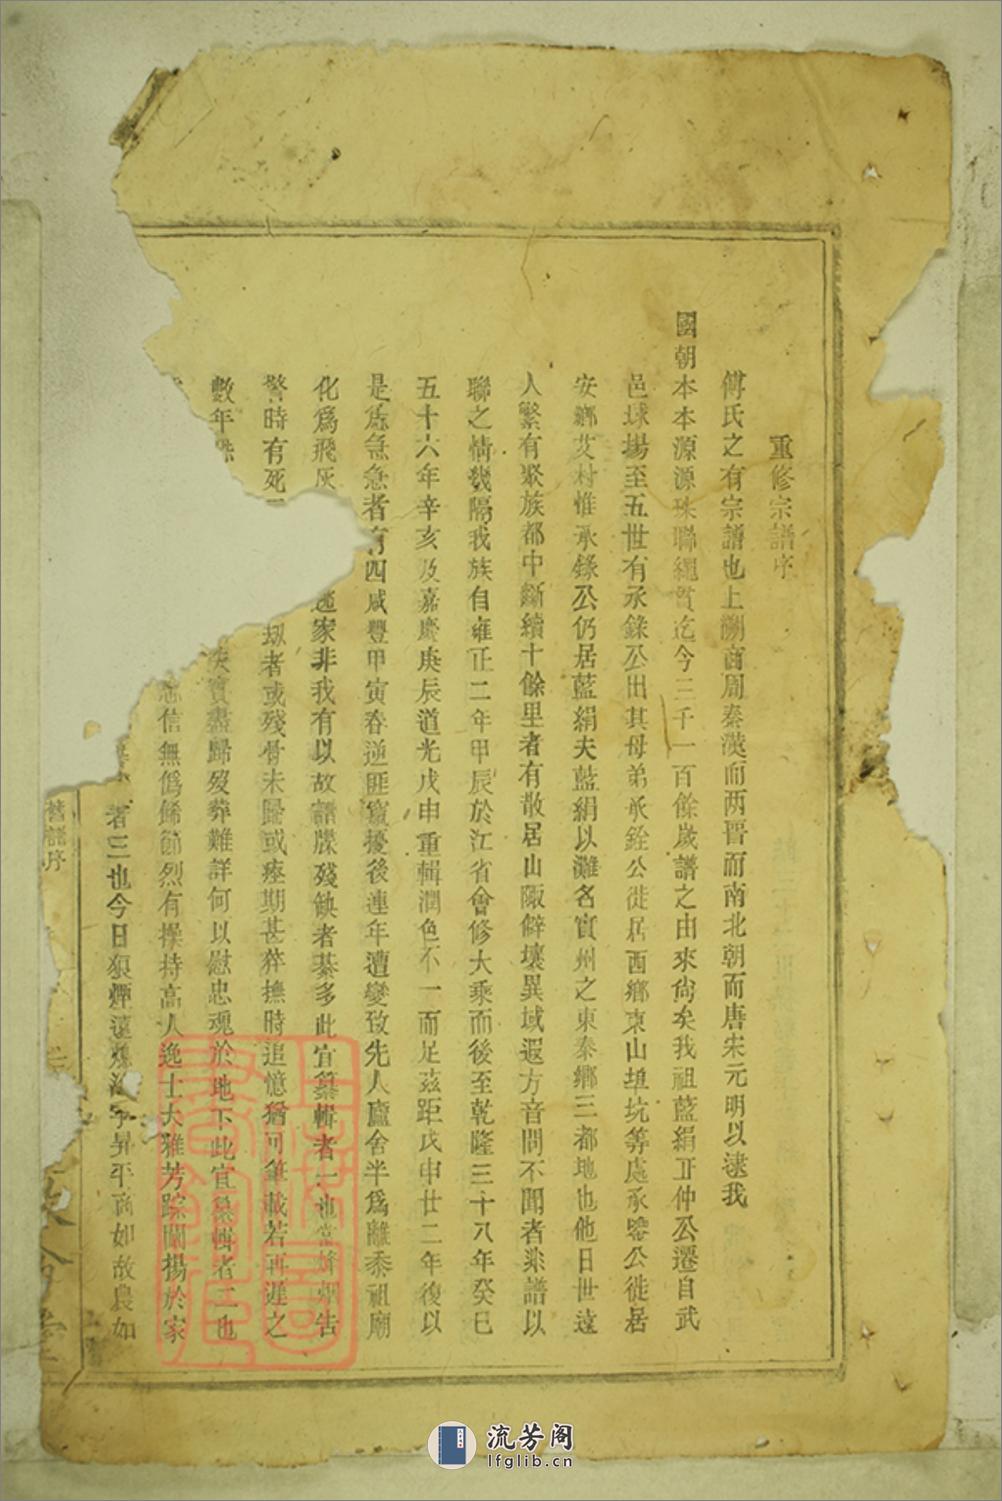 重修宗譜序
傅氏之有宗譜也上溯商周秦漢而两晋而南北朝而唐宋元明以逮我
國朝本本源源珠聯繩貫迄今三千一百餘歲譜之由來尙矣我祖藍絹正仲公遷自武
邑球塲至五世有承錄公出其母弟承銓公徙居西鄉東山埴坑等處承鑒公徙居
安鄉艾村惟承錄公仍居藍絹夫藍絹以灘名實州之東秦鄉三都地也他日世遠
人繁有聚族都中斷續十餘里者有散居山陬僻壤異域遐方音問不聞者梁譜以
聯之情幾隔我族自雍正二年甲辰於江省會修大乘而後至乾隆三十八年癸巳
五十六年辛亥及嘉慶庚辰道光戊申重輯潤色不一而足茲距戊申廿二年復以
是爲急急者有四咸豐甲寅春逆匪竄擾後連年遭變致先人廬舍半爲離黍祖廟
化爲飛灰 家非我有以故譜牒殘缺者綦多此宜纂輯者一也 烽煙告
警時有死 刼者或殘骨未歸或瘞期甚猝撫時追憶猶可筆載若再遲之
數年 實盡歸歿葬難詳何以慰忠魂於地下此宜 者二也
信無僞餙節烈有操持高人逸士大雅芳踪闡揚於家
者三也今日狼煙遠 昇平商如故農如
舊譜序
流芳阁
lfglib.cn